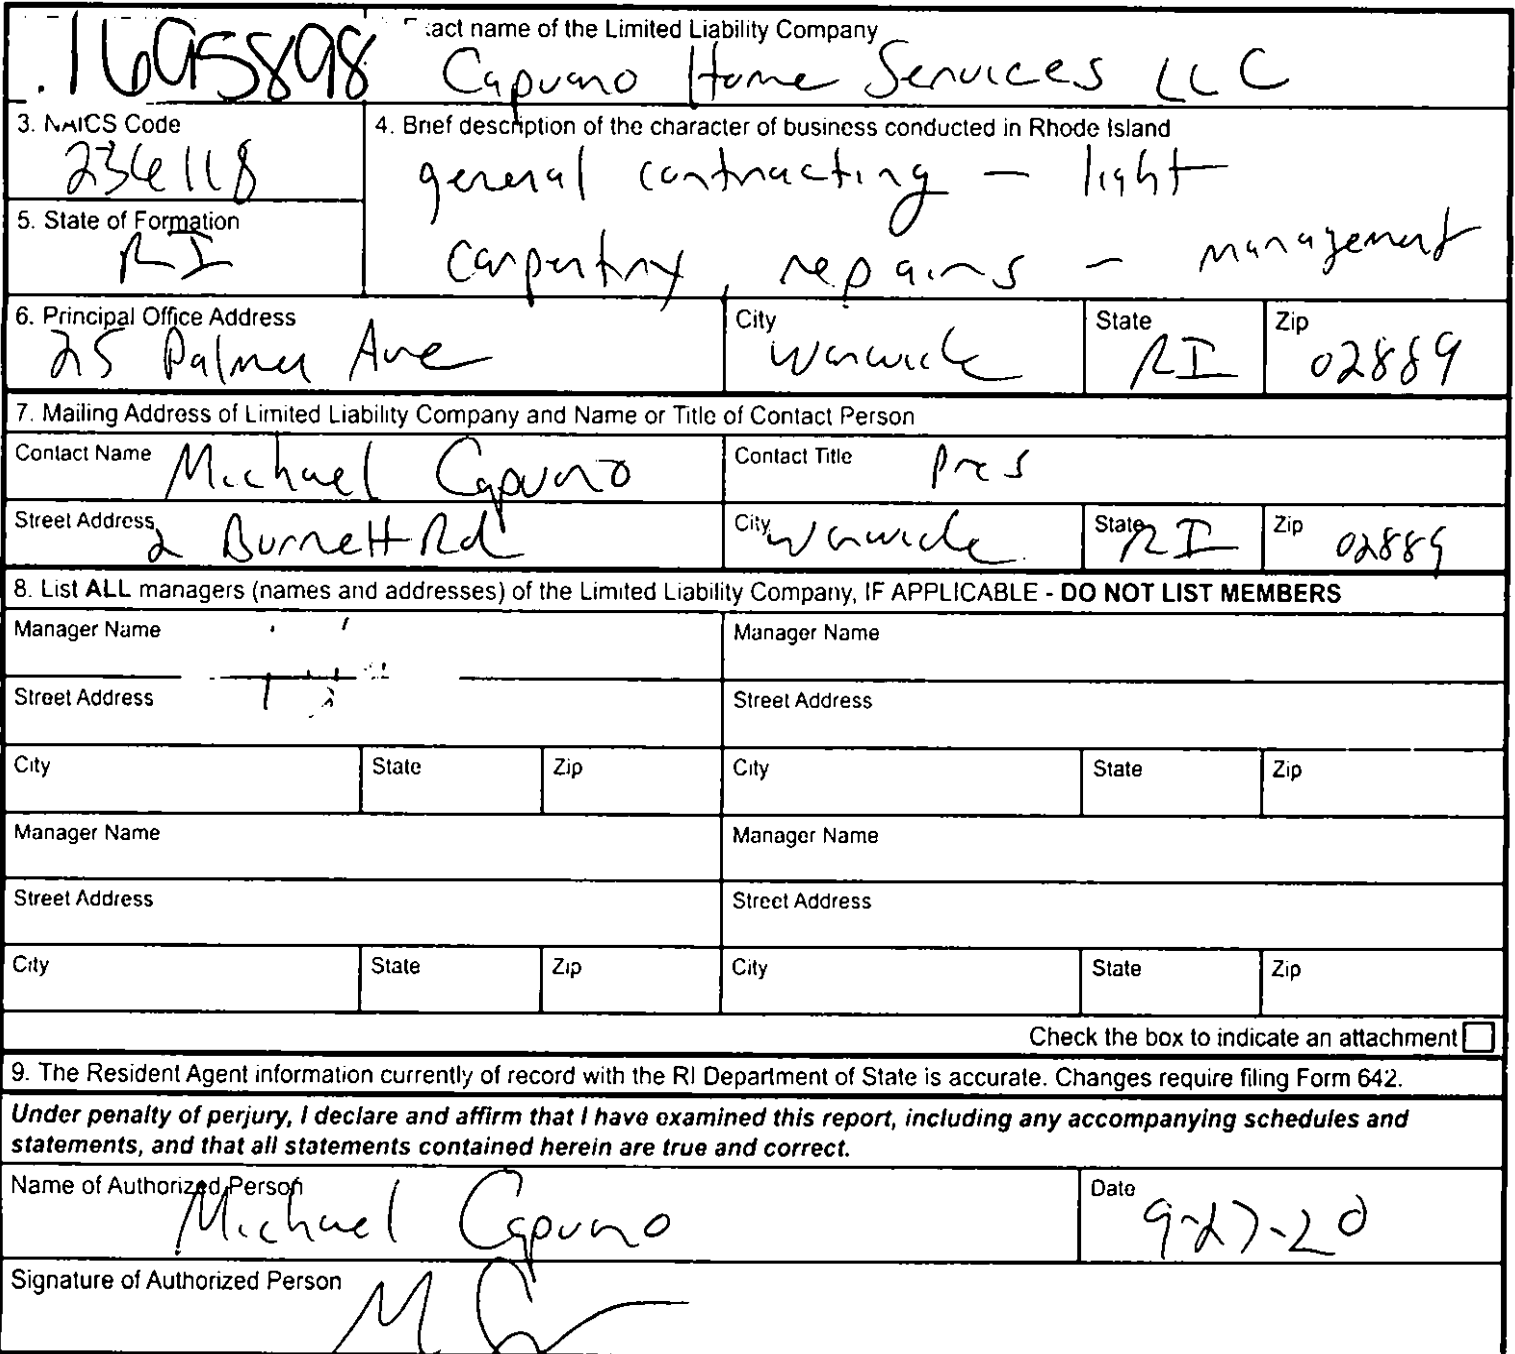 .1695898
Exact name of the Limited Liability Company
Capuano Home Services LLC
3. NAICS Code
236118
4. Brief description of the character of business conducted in Rhode Island
general contracting - light
carpentry, repairs - management
5. State of Formation
RI
6. Principal Office Address
25 Palmer Ave
City
Warwick
State
RI
Zip
02889
7. Mailing Address of Limited Liability Company and Name or Title of Contact Person
Contact Name Michael Capuano
Contact Title Pres
Street Address 2 Burnett Rd
City Warwick
State RI
Zip 02889
8. List ALL managers (names and addresses) of the Limited Liability Company, IF APPLICABLE - DO NOT LIST MEMBERS
Manager Name
Manager Name
Street Address
Street Address
City State Zip City State Zip
Manager Name
Manager Name
Street Address
Street Address
City State Zip City State Zip
Check the box to indicate an attachment
9. The Resident Agent information currently of record with the RI Department of State is accurate. Changes require filing Form 642.
Under penalty of perjury, I declare and affirm that I have examined this report, including any accompanying schedules and
statements, and that all statements contained herein are true and correct.
Name of Authorized Person
Michael Capuano
Date
9-27-20
Signature of Authorized Person